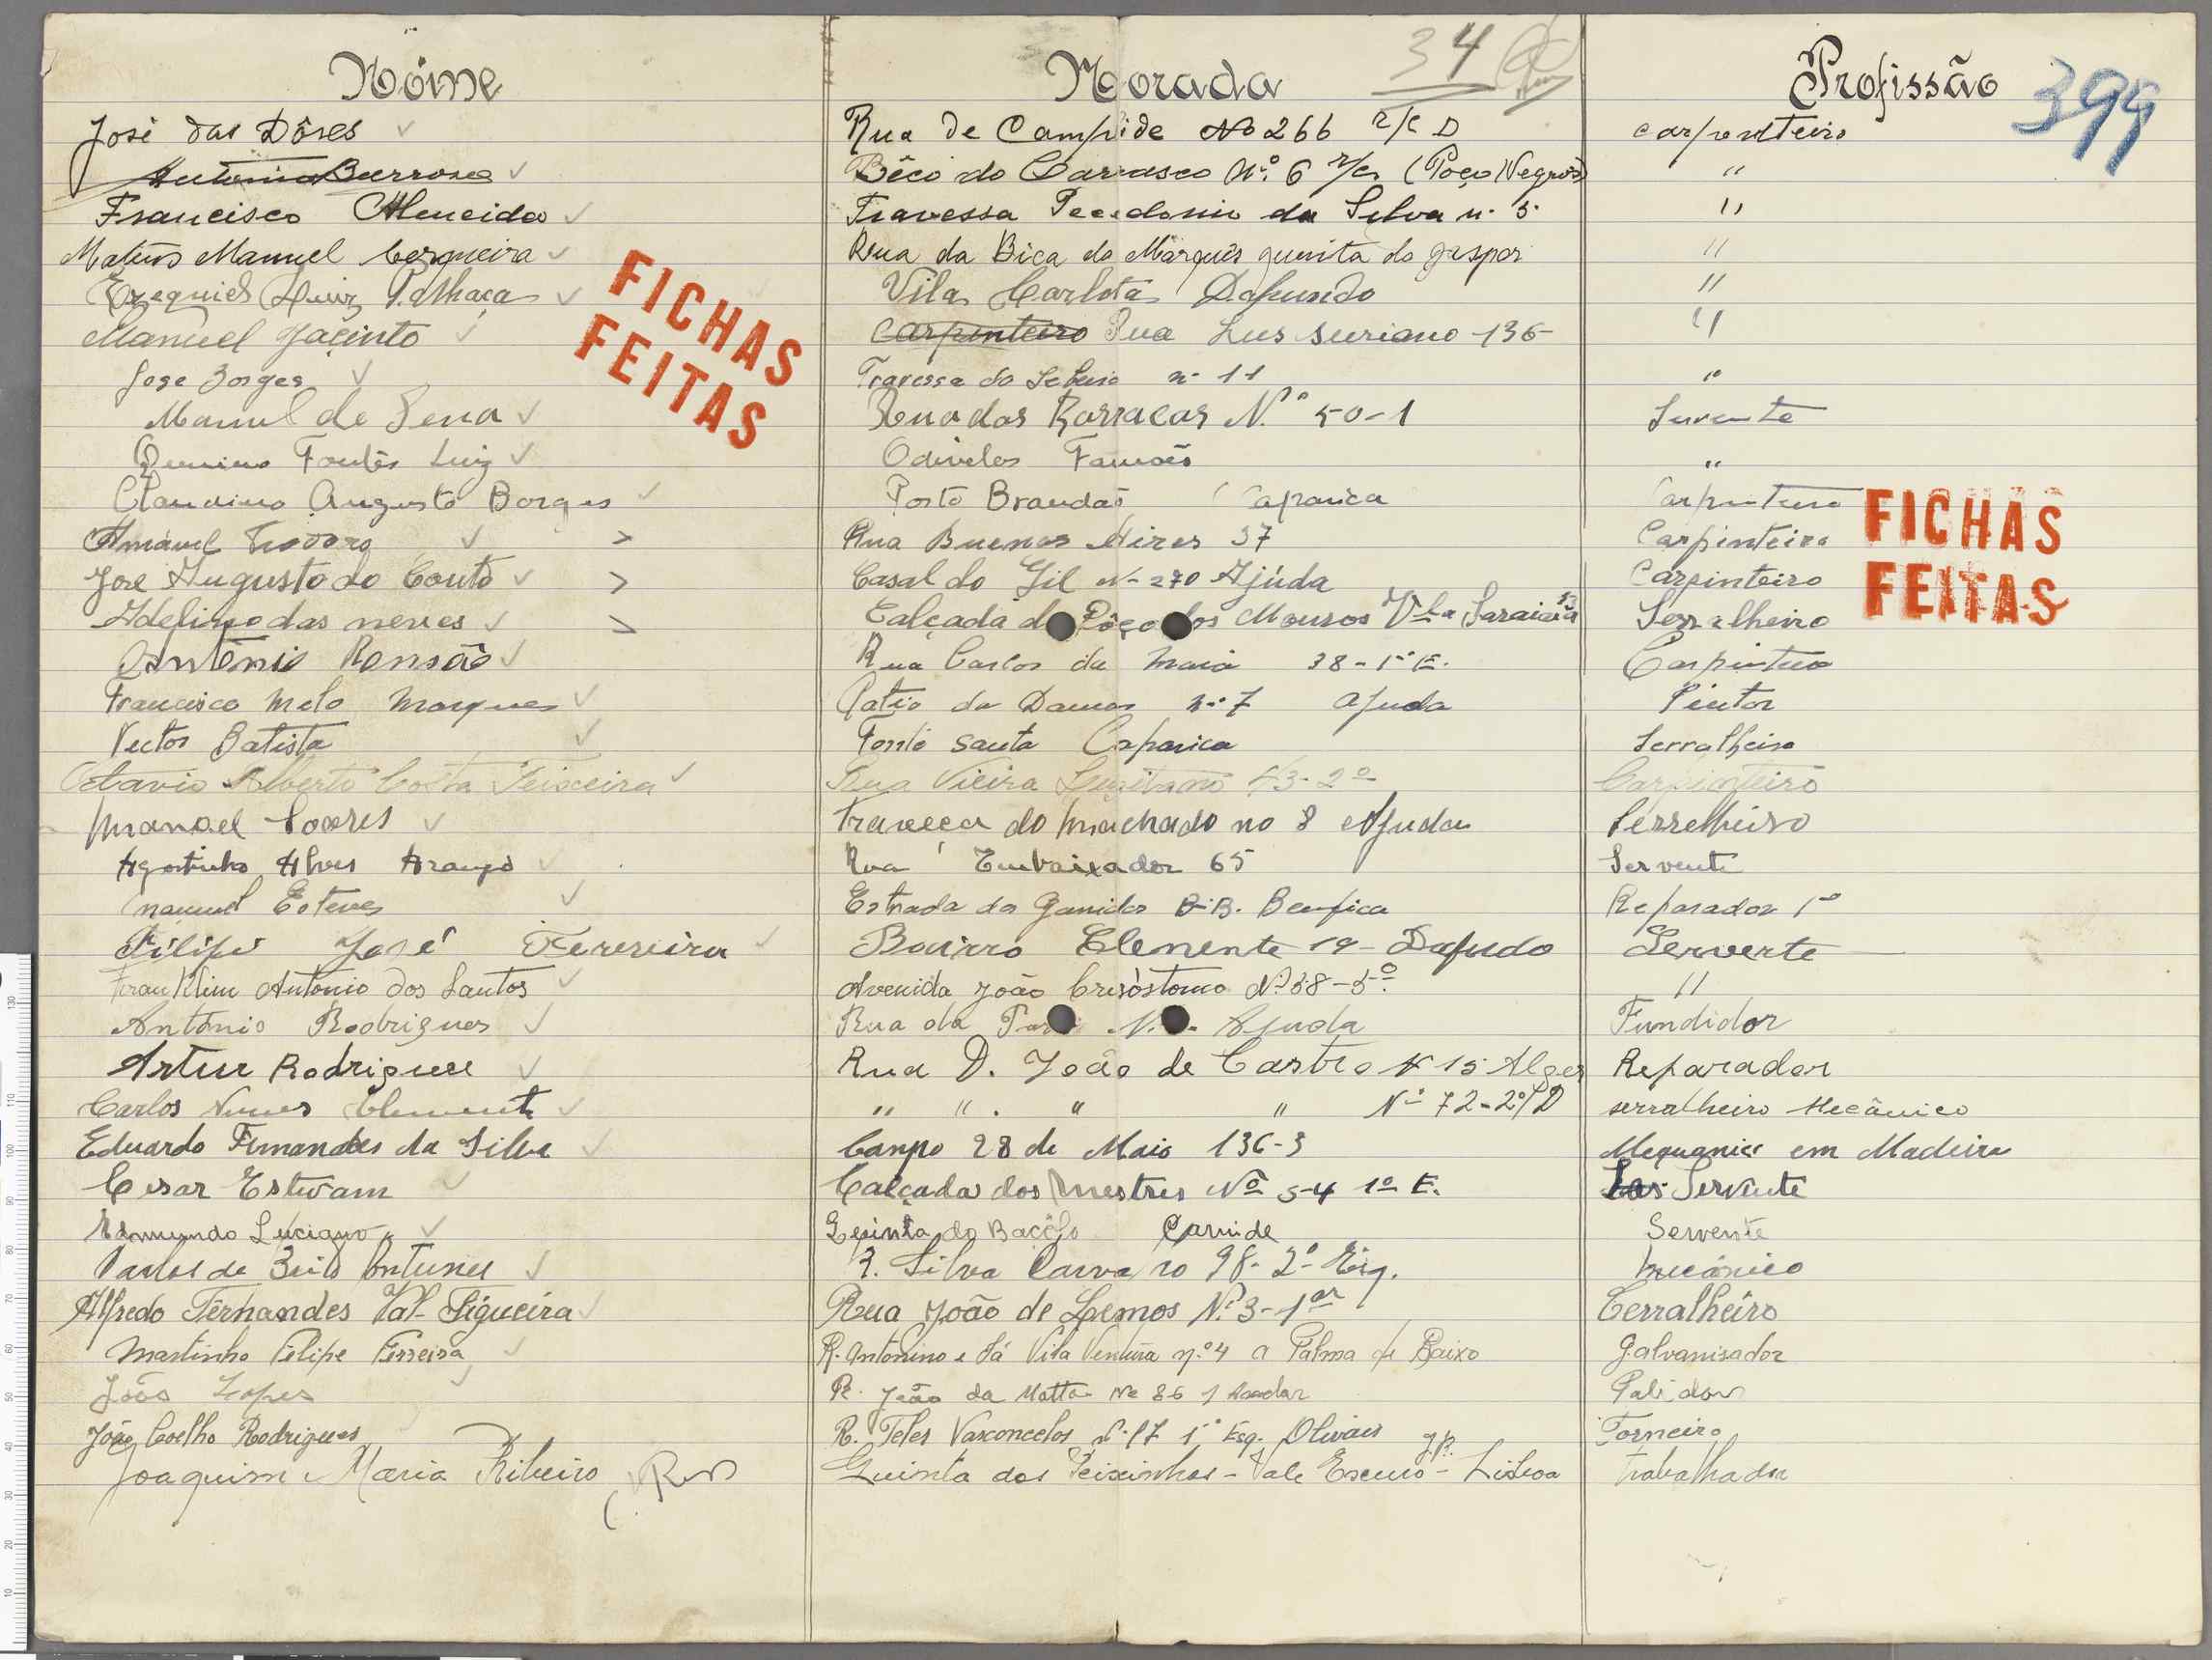 34
Nóme Morada Profissão 399
José das Dôres Rua de Campolide No 266 r/c D carpenteiro
Antonio Barroso Bêco do Carrasco Nº 6 r/c (Poço Negros) "
Francisco Almeida Travessa da Silva n. 5 "
Mateus Manuel Cerqueira Rua da Bica do Marquês quinta do gaspar "
Ezequiel Luiz Palhaça Vila Carlota Dafundo "
Manuel Jacinto carpenteiro Rua Lus suriano 136 "
Jose Borges Travessa do nº 11 "
Manuel de Sena Rua das Barracas N.º 50-1 Servente
Fontes Luiz Odivelas Famões "
Claudino Augusto Borges Porto Brandão Caparica Carpinteiro
Amavel Rua Buenos Aires 37 Carpinteiro
José Augusto do Couto Casal do Gil Nº 270 Ajúda Carpinteiro
Adelino das neves Calçada do Pôço dos Mouros Vila Saraiva 13 Serralheiro
António Ronsão Rua Carlos da Maia 38-1º E. Carpinteiro
Francisco Melo Marques Patio da Damas nº 7 Ajuda Pintor
Victor Batista Fonte Santa Caparica Serralheiro
Octavio Alberto Costa Teixeira Rua Vieira Lusitano 43-2º Carpinteiro
Manoel Soares Traveça do Machado no 8 Ajuda Serrelheiro
Agostinho Alves Araujo Rua Embaixador 65 Servente
Manuel Esteves Estrada da Garridas B.B. Benfica Reparador 1º
Filipe José Ferereira Bairro Clemente 19 Dafudo Serverte
Franklim António dos Santos Avenida João Crisóstomo Nº 38-5º "
António Rodrigues Rua da N. Ajuda Fundidor
Artur Rodrigues Rua D. João de Castro Nº 15 Alges Reparador
Carlos Nunes Clemente " " . " " Nº 72-2º/D serralheiro Mecânico
Eduardo Fernandes da Silva Canpo 28 de Maio 136-3 Mequanico em Madeira
Cesar Estevam Calçada dos Mestres Nº 54 1º E. Servente
Edmundo Luciano Qeinta do Bacôlo Carnide Servente
Carlos de Brito Antunes R. Silva Carvalho 98-2º Esq. Mecânico
Alfredo Fernandes Val-Figueira Rua João de Lemos Nº 3-1ar Cerralheiro
Martinho Filipe Ferreira R. Antonino e Sá Vila Ventura n.º 4 a Palma de Baixo galvanisador
João Lopes R. João da Matta No 86 1 Aandar Pulidor
João Coelho Rodrigues R. Teles Vasconcelos Nº 17 1º Esq. Olivais Torneiro
Joaquim Maria Ribeiro Quinta dos Peixinhos - Vale Escuro - J.P. Lisboa trabalhador
FICHAS
FEITAS
FICHAS
FEITAS